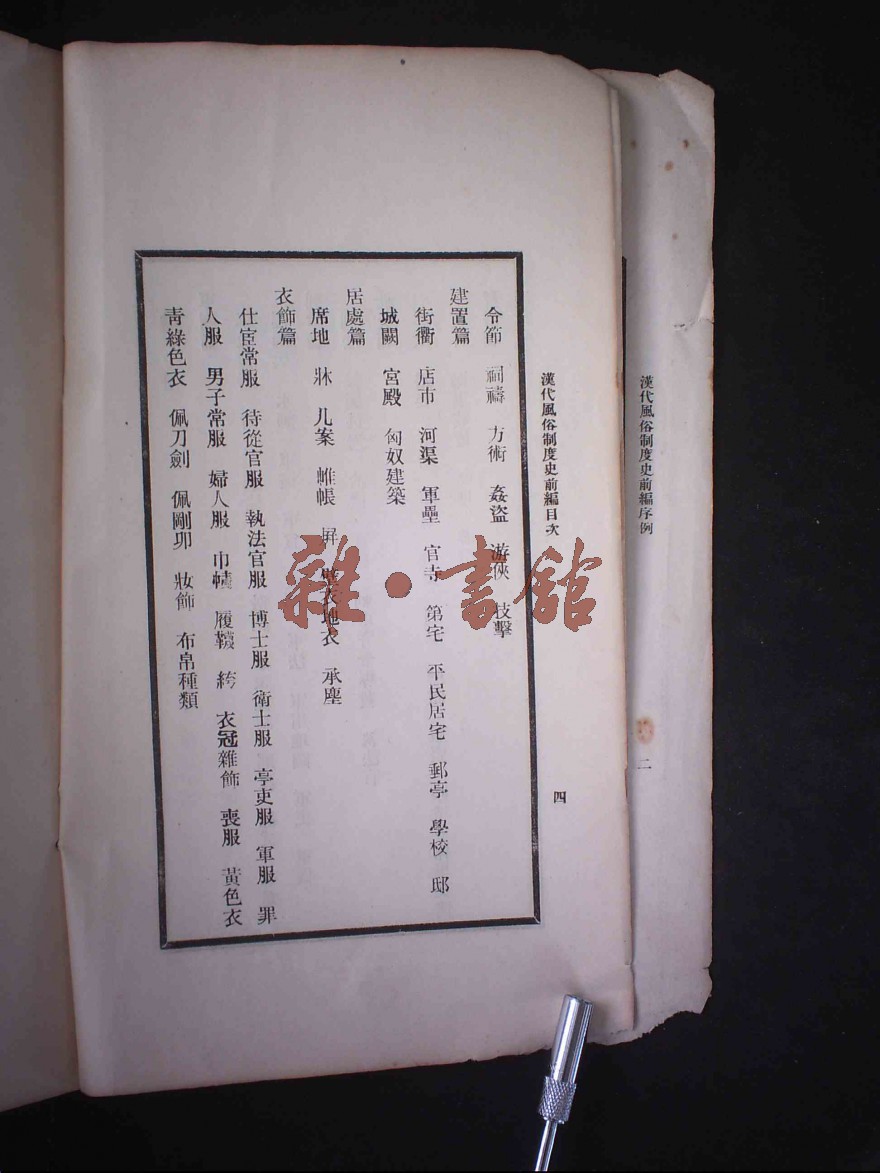 漢代風俗制度史前編序例
二
漢代風俗制度史前編目次
四
令節 祠禱 方術 姦盜 游俠 技擊
建置篇
街衢 店市 河渠 軍壘 官寺 第宅 平民居宅 郵亭 學校 邸
城闕 宮殿 匈奴建築
居處篇
席地 牀 几案 帷帳 屏 壁衣地衣 承塵
衣飾篇
仕宦常服 待從官服 執法官服 博士服 衛士服 亭吏服 軍服 罪
人服 男子常服 婦人服 巾幘 履韈 絝 衣冠雜飾 喪服 黃色衣
青綠色衣 佩刀劍 佩剛卯 妝飾 布帛種類
雜·書館